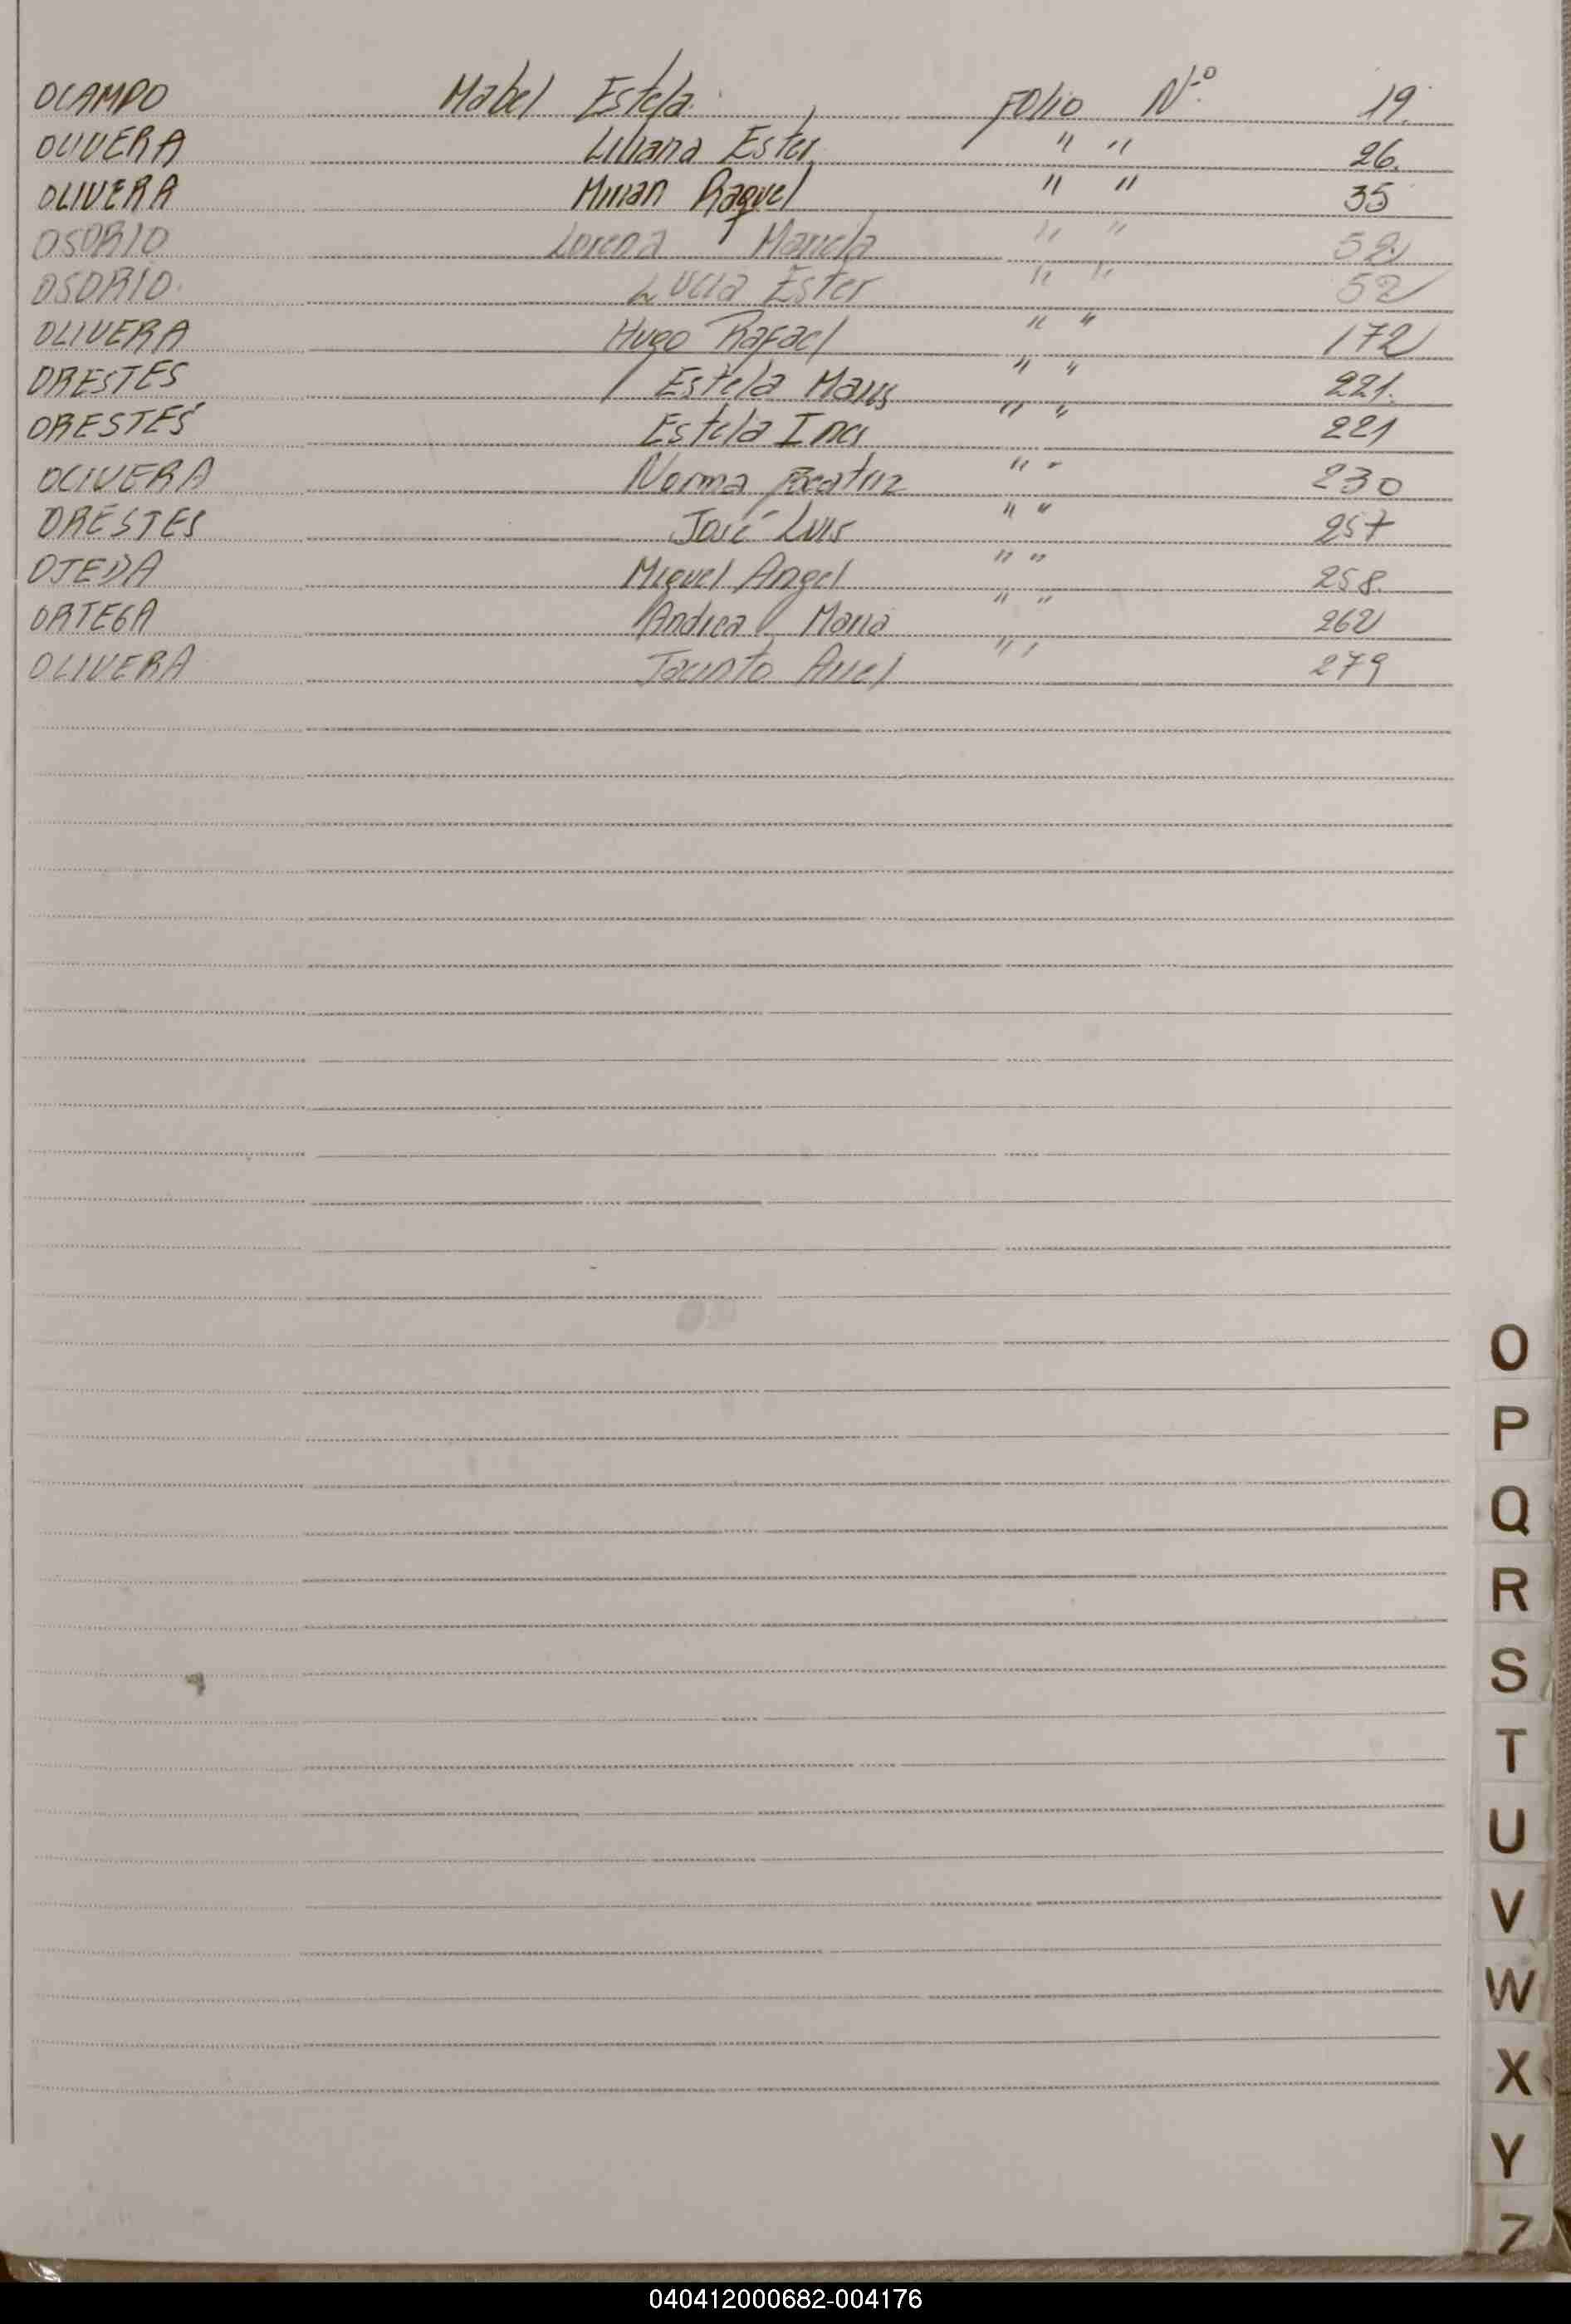 OCAMPO Mabel Estela. Folio N.º 19.
OLIVERA Liliana Ester " " 26.
OLIVERA Mirian Raquel " " 35
OSORIO Lorena Mariela " " 52
OSORIO. Lucia Ester " " 52
OLIVERA Hugo Rafael " " 172
ORESTES Estela Maris " " 221.
ORESTES Estela Ines " " 221
OLIVERA Norma Beatriz " " 230
ORESTES José Luis " " 257
OJEDA Miguel Angel " " 258.
ORTEGA Andrea Maria " " 262
OLIVERA Jacinto Ariel " " 279
O
P
Q
R
S
T
U
V
W
X
Y
Z
040412000682-004176